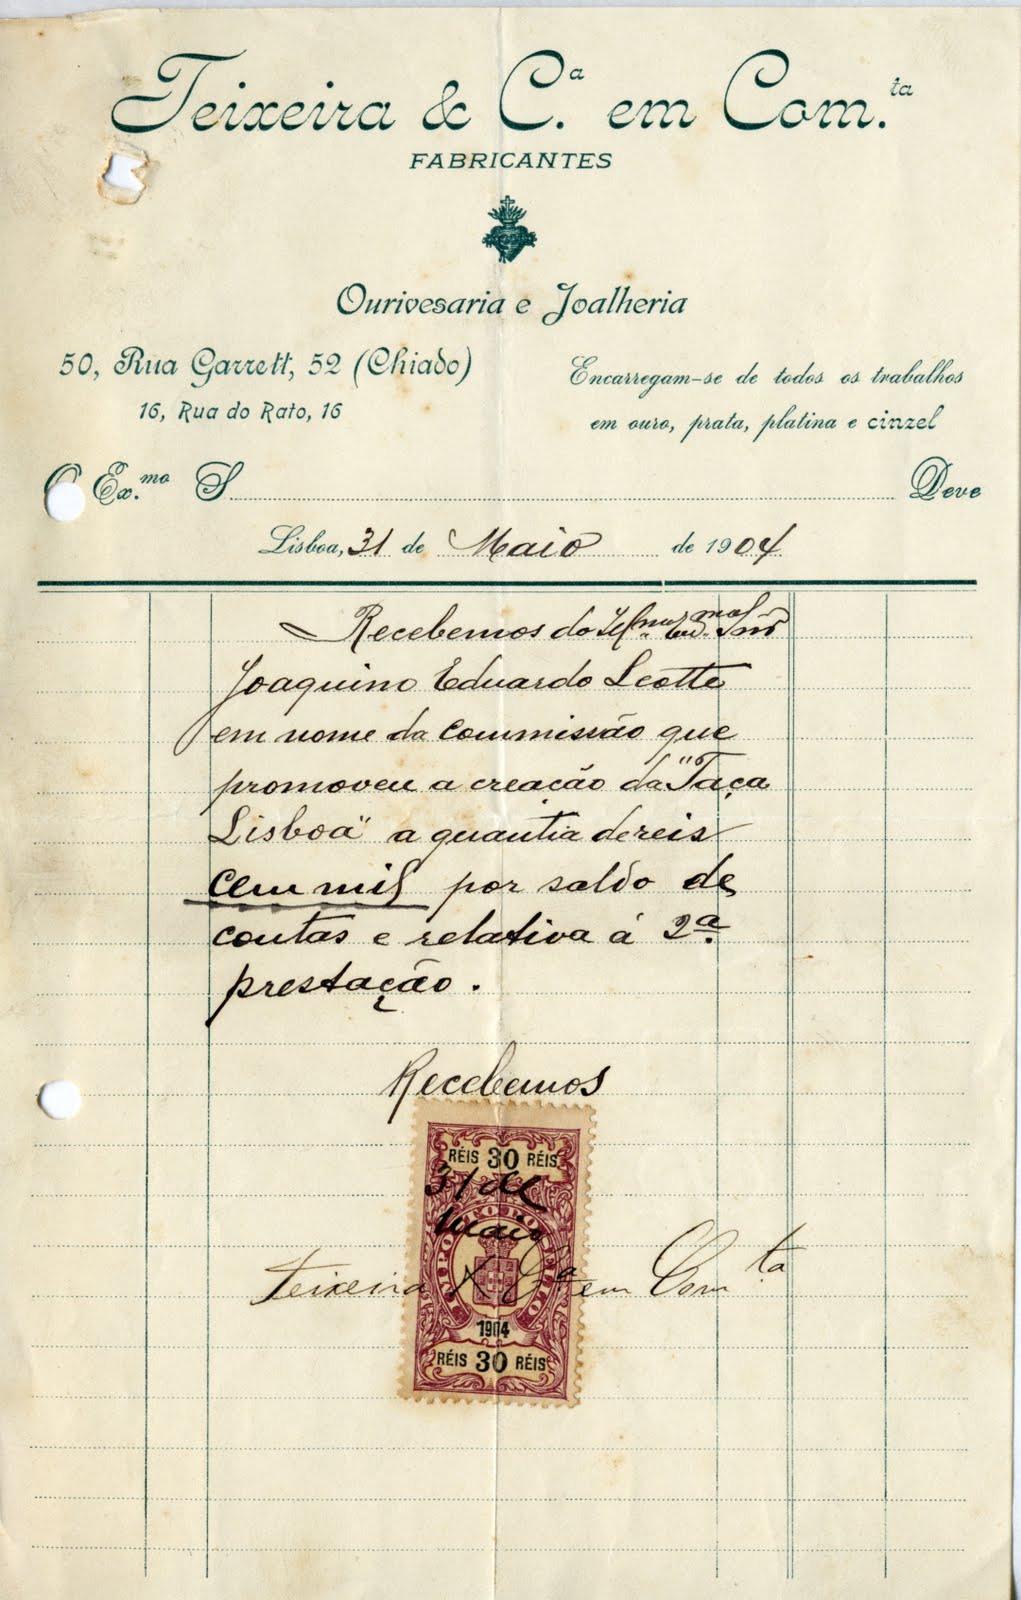 Teixeira & C.ª em Com.ta
FABRICANTES
Ourivesaria e Joalheria
50, Rua Garrett, 52 (Chiado)
16, Rua do Rato, 16
Encarregam-se de todos os trabalhos
em ouro, prata, platina e cinzel
O Ex.mo S Deve
Lisboa, 31 de Maio de 1904
Recebemos do
Joaquim Eduardo Leotte
em nome da Commissão que
promoveu a creacão da "Taça
Lisboa" a quantia de reis
cem mil por saldo de
contas e relativa á 2ª
prestação.
Recebemos
RÉIS 30 RÉIS
31 de
maio
Teixeira & Cª em Comta
1904
RÉIS 30 RÉIS